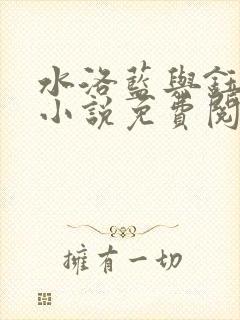 水洛藍與鈺
小說免費閱
擁有一切